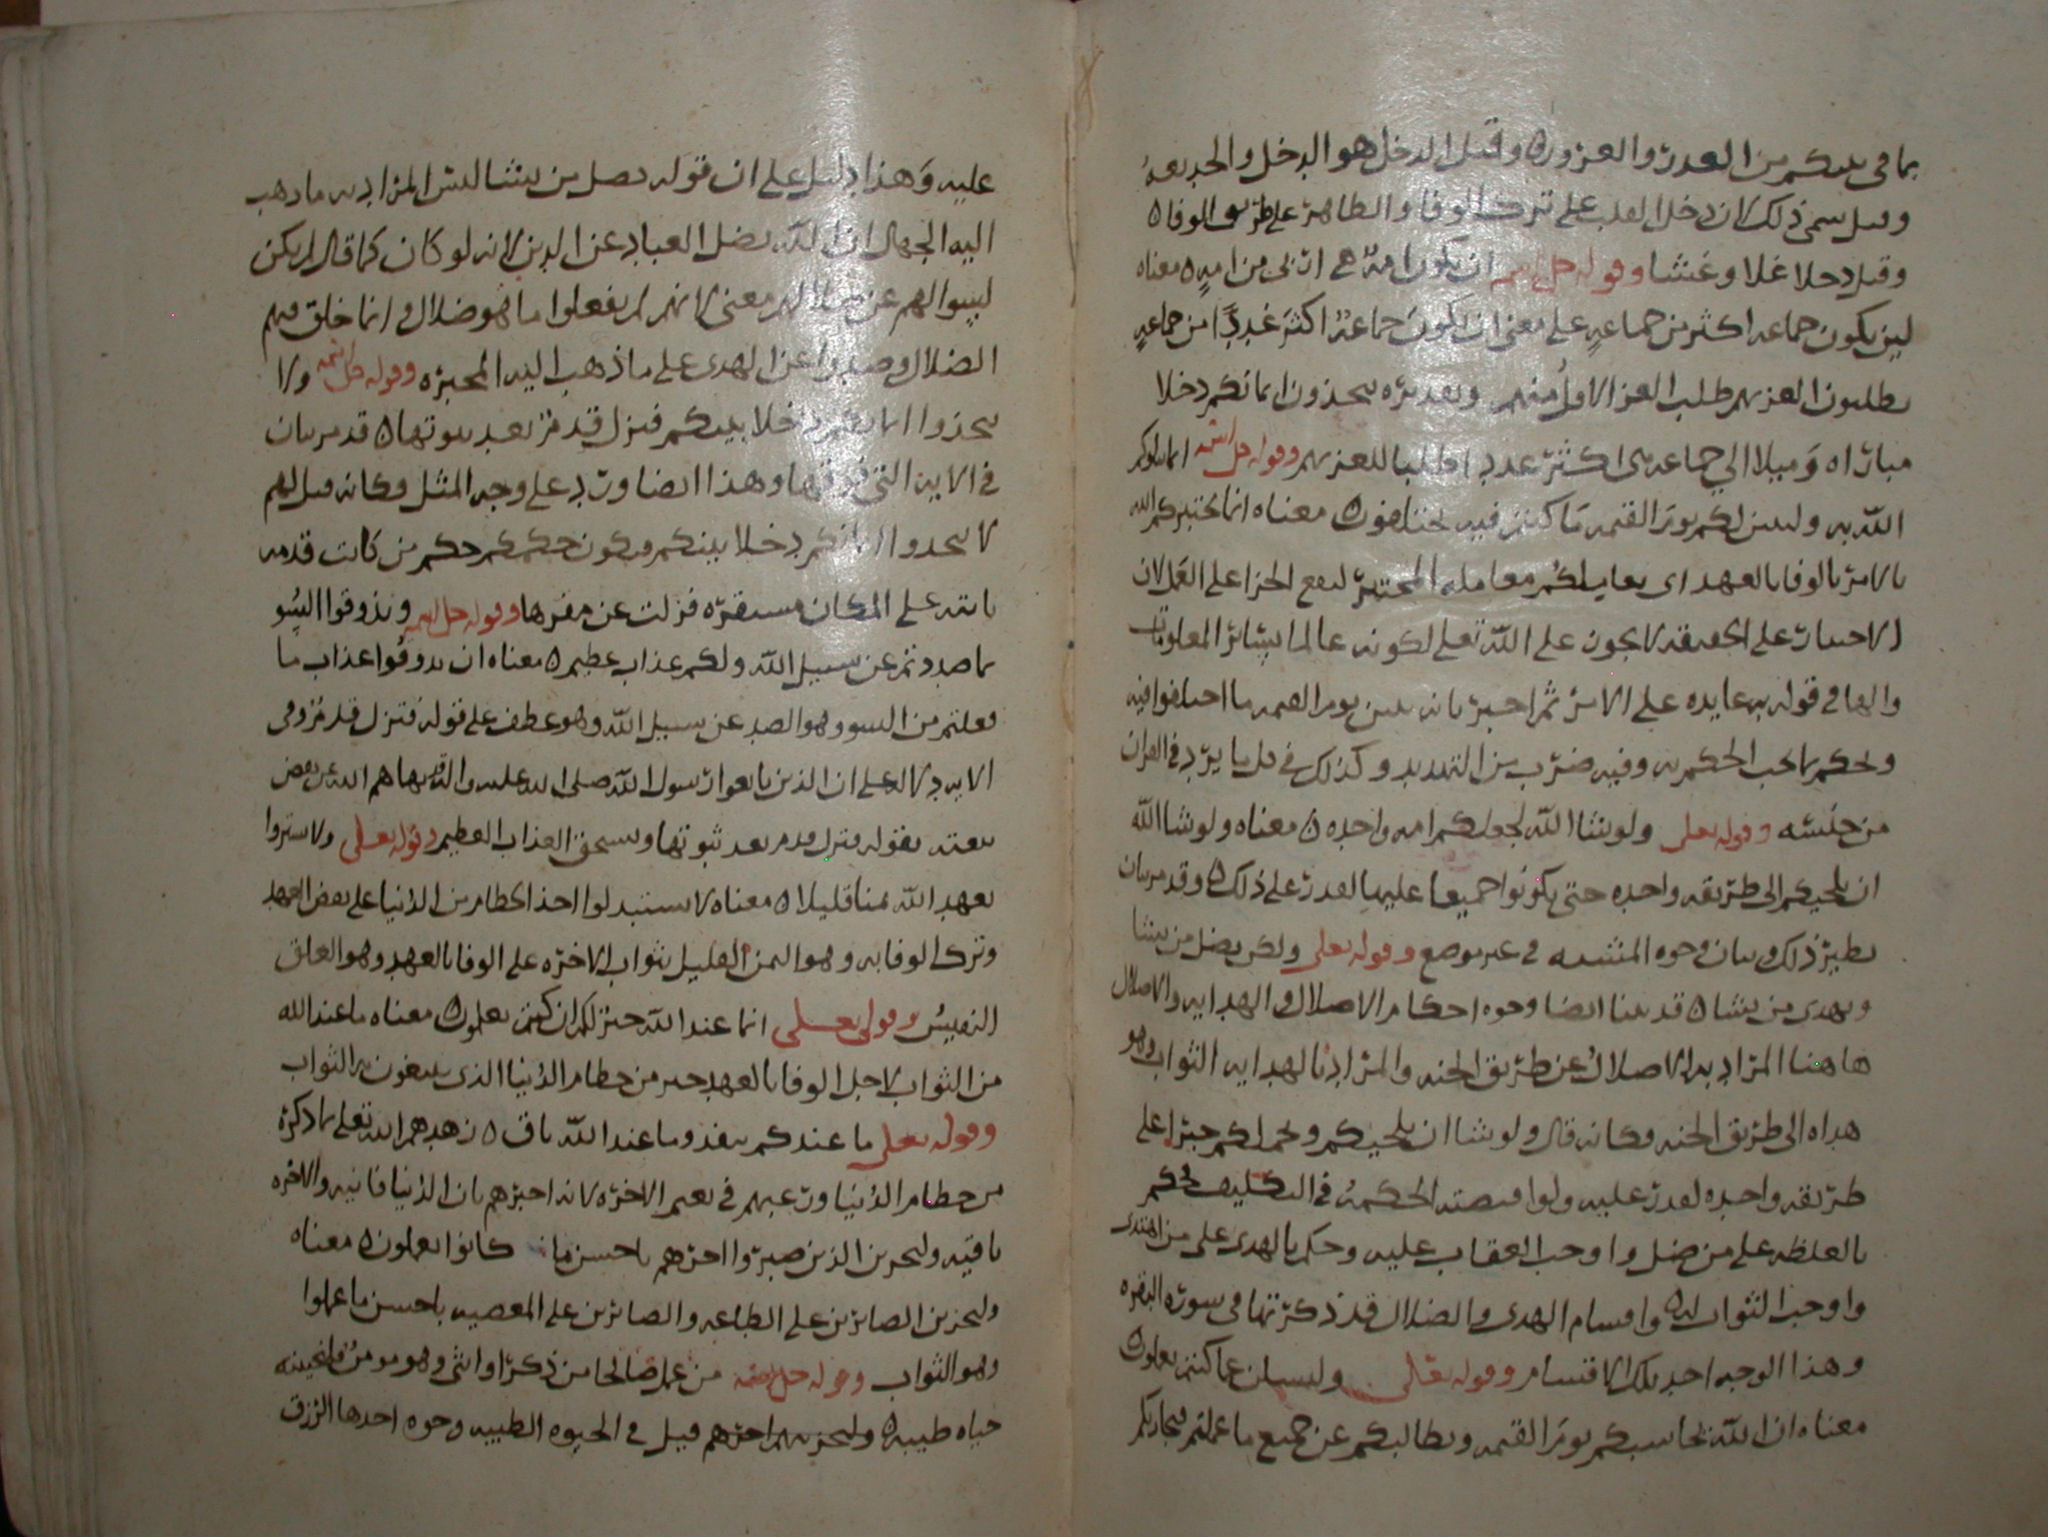 بما في بينكم من الغدر والغرور ه وقيل الدخل هو الدخل والخديعة
وقيل سمي ذلك لان دخل القلب على ترك الوفا والظاهر على طريق الوفا ه
وقيل دخلا غلا وغشا وقوله جل اسمه ان تكون امة هي اربى من امة ه معناه
لين يكون جماعه اكثر من جماعه على معنى ان تكون جماعة اكثر عددا من جماعه
يطلبون العز بهم طلب العز الاول منهم وتقديره تتخذون ايمانكم دخلا
الي جماعه هى اكثر عددا طلبا للعز بهم وقوله جل اسمه انما يبلوكم
الله به وليبينن لكم يوم القيمه ما كنتم فيه تختلفون ه معناه انما يختبركم الله
بالامر بالوفا بالعهد اي يعاملكم معاملة المختبر ليقع الجزا على العمل لان
الاختبار على الحقيقه لا يجوز على الله تعلى لكونه عالما بسائر المعلومات
والها في قوله به عايده على الامر ثم اخبر بانه يبين يوم القيمه ما اختلفوا فيه
ويحكم بما يجب الحكم به وفيه ضرب من التهديد وكذلك في كل ما يرد في القران
من جنسه وقوله تعلى ولو شا الله لجعلكم امه واحده ه معناه ولو شا الله
ان يلجيكم الى طريقه واحده حتى يكونوا جميعا عليها لقدر على ذلك ه وقد مر بيان
نظير ذلك وبيان وجوه المشيه في غير موضع وقوله تعلى ولكن يضل من يشا
ويهدى من يشا ه قد بينا ايضا وجوه احكام الاضلال والهدايه والاضلال
هاهنا المراد به الاضلال عن طريق الجنه والمراد بالهدايه الثواب وهو
هداه الى طريق الجنه وكانه قال ولو شا ان يلجيكم ويحملكم جبرا على
طريقه واحده لقدر عليه ولو اقتضته الحكمة في التكليف لحكم
بالغلظه على من ضل واوجب العقاب عليه وحكم بالهدى على من اهتدى
واوجب الثواب له ه واقسام الهدى والضلال قد ذكرتها في سورة البقره
وهذا الوجه احد تلك الاقسام وقوله تعالى ولتسئلن عما كنتم تعملون
معناه ان الله يحاسبكم يوم القيمه ويطالبكم عن جميع ما عملتم فيجازيكم
عليه وهذا دليل على ان قوله يضل من يشا ليس المراد به ما ذهب
اليه الجهال ان الله يضل العباد عن الدين لانه لو كان كما قال لم يكن
لسوالهم عن معنى لانهم لم يفعلوا ما هو ضلال وانما خلق فيهم
الضلال وصدوا عن الهدى على ما ذهب اليه المجبره وقوله جل اسمه ولا
تتخذوا ايمانكم دخلا بينكم فتزل قدم بعد ثبوتها ه قد مر بيان
في الايه التي فوقها وهذا ايضا ورد على وجه المثل وكانه قيل لهم
لا تتخذوا ايمانكم دخلا بينكم فيكون حكمكم حكم من كانت قدمه
ثابته على المكان مستقره فزلت عن مقرها وقوله جل اسمه وتذوقوا السو
بما صددتم عن سبيل الله ولكم عذاب عظيم ه معناه ان تذوقوا عذاب ما
فعلتم من السو وهو الصد عن سبيل الله وهو عطف على قوله فتزل قدم وفى
الايه دلاله على ان الذين بايعوا رسول الله صلى الله عليه واله
بقوله فتزل قدم بعد ثبوتها ويستحق العذاب العظيم وقوله تعلى ولا تشتروا
بعهد الله ثمنا قليلا ه معناه لا تستبدلوا اخذ الحطام من الدنيا على نقض العهد
وترك الوفا به وهو الثمن القليل بثواب الاخره على الوفا بالعهد وهو العلق
النفيس وقوله تعلى انما عند الله خير لكم ان كنتم تعلمون ه معناه ما عند الله
من الثواب لاجل الوفا بالعهد خير من حطام الدنيا الذى يبتغون به الثواب
وقوله تعلى ما عندكم ينفد وما عند الله باق ه زهدهم الله تعلى بما ذكره
من حطام الدنيا ورغبهم في نعيم الاخره لانه اخبرهم بان الدنيا فانيه والاخره
باقيه ولنجزين الذين صبروا اجرهم باحسن ما كانوا يعملون ه معناه
ولنجزين الصابرين على الطاعه والصابرين على المعصيه باحسن ما عملوا
وهو الثواب وقوله جل اسمه من عمل صالحا من ذكر او انثى وهو مومن فلنحيينه
حياه طيبه ه ولنجزينهم اجرهم قيل في الحيوه الطيبه وجوه احدها الرزق